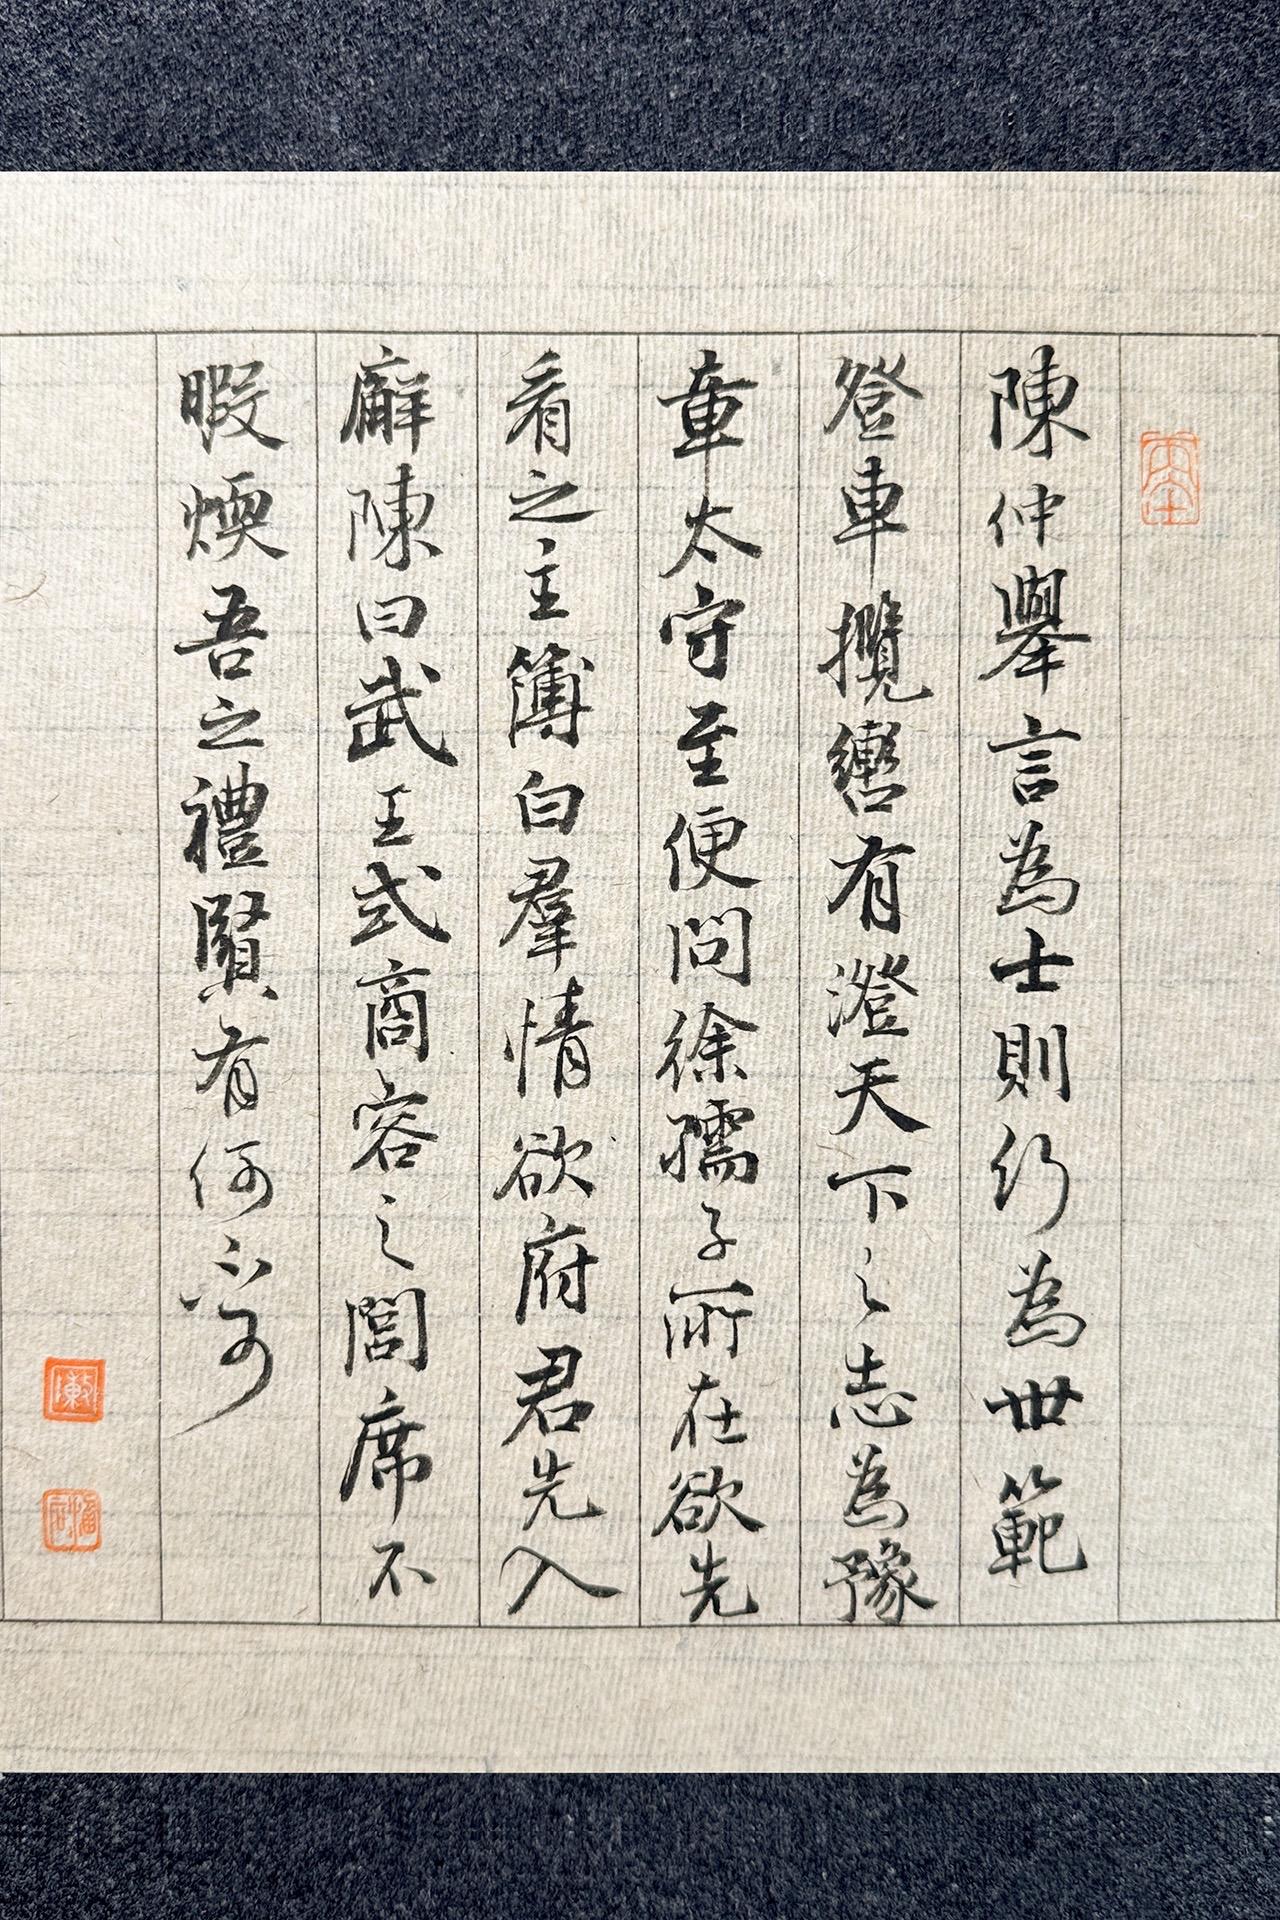 陳仲舉言為士則行為世範
登車攬轡有澄天下之志為豫
章太守至便問徐孺子所在欲先
看之主簿白羣情欲府君先入
廨陳曰武王式商容之閭席不
暇煗吾之禮賢有何不可